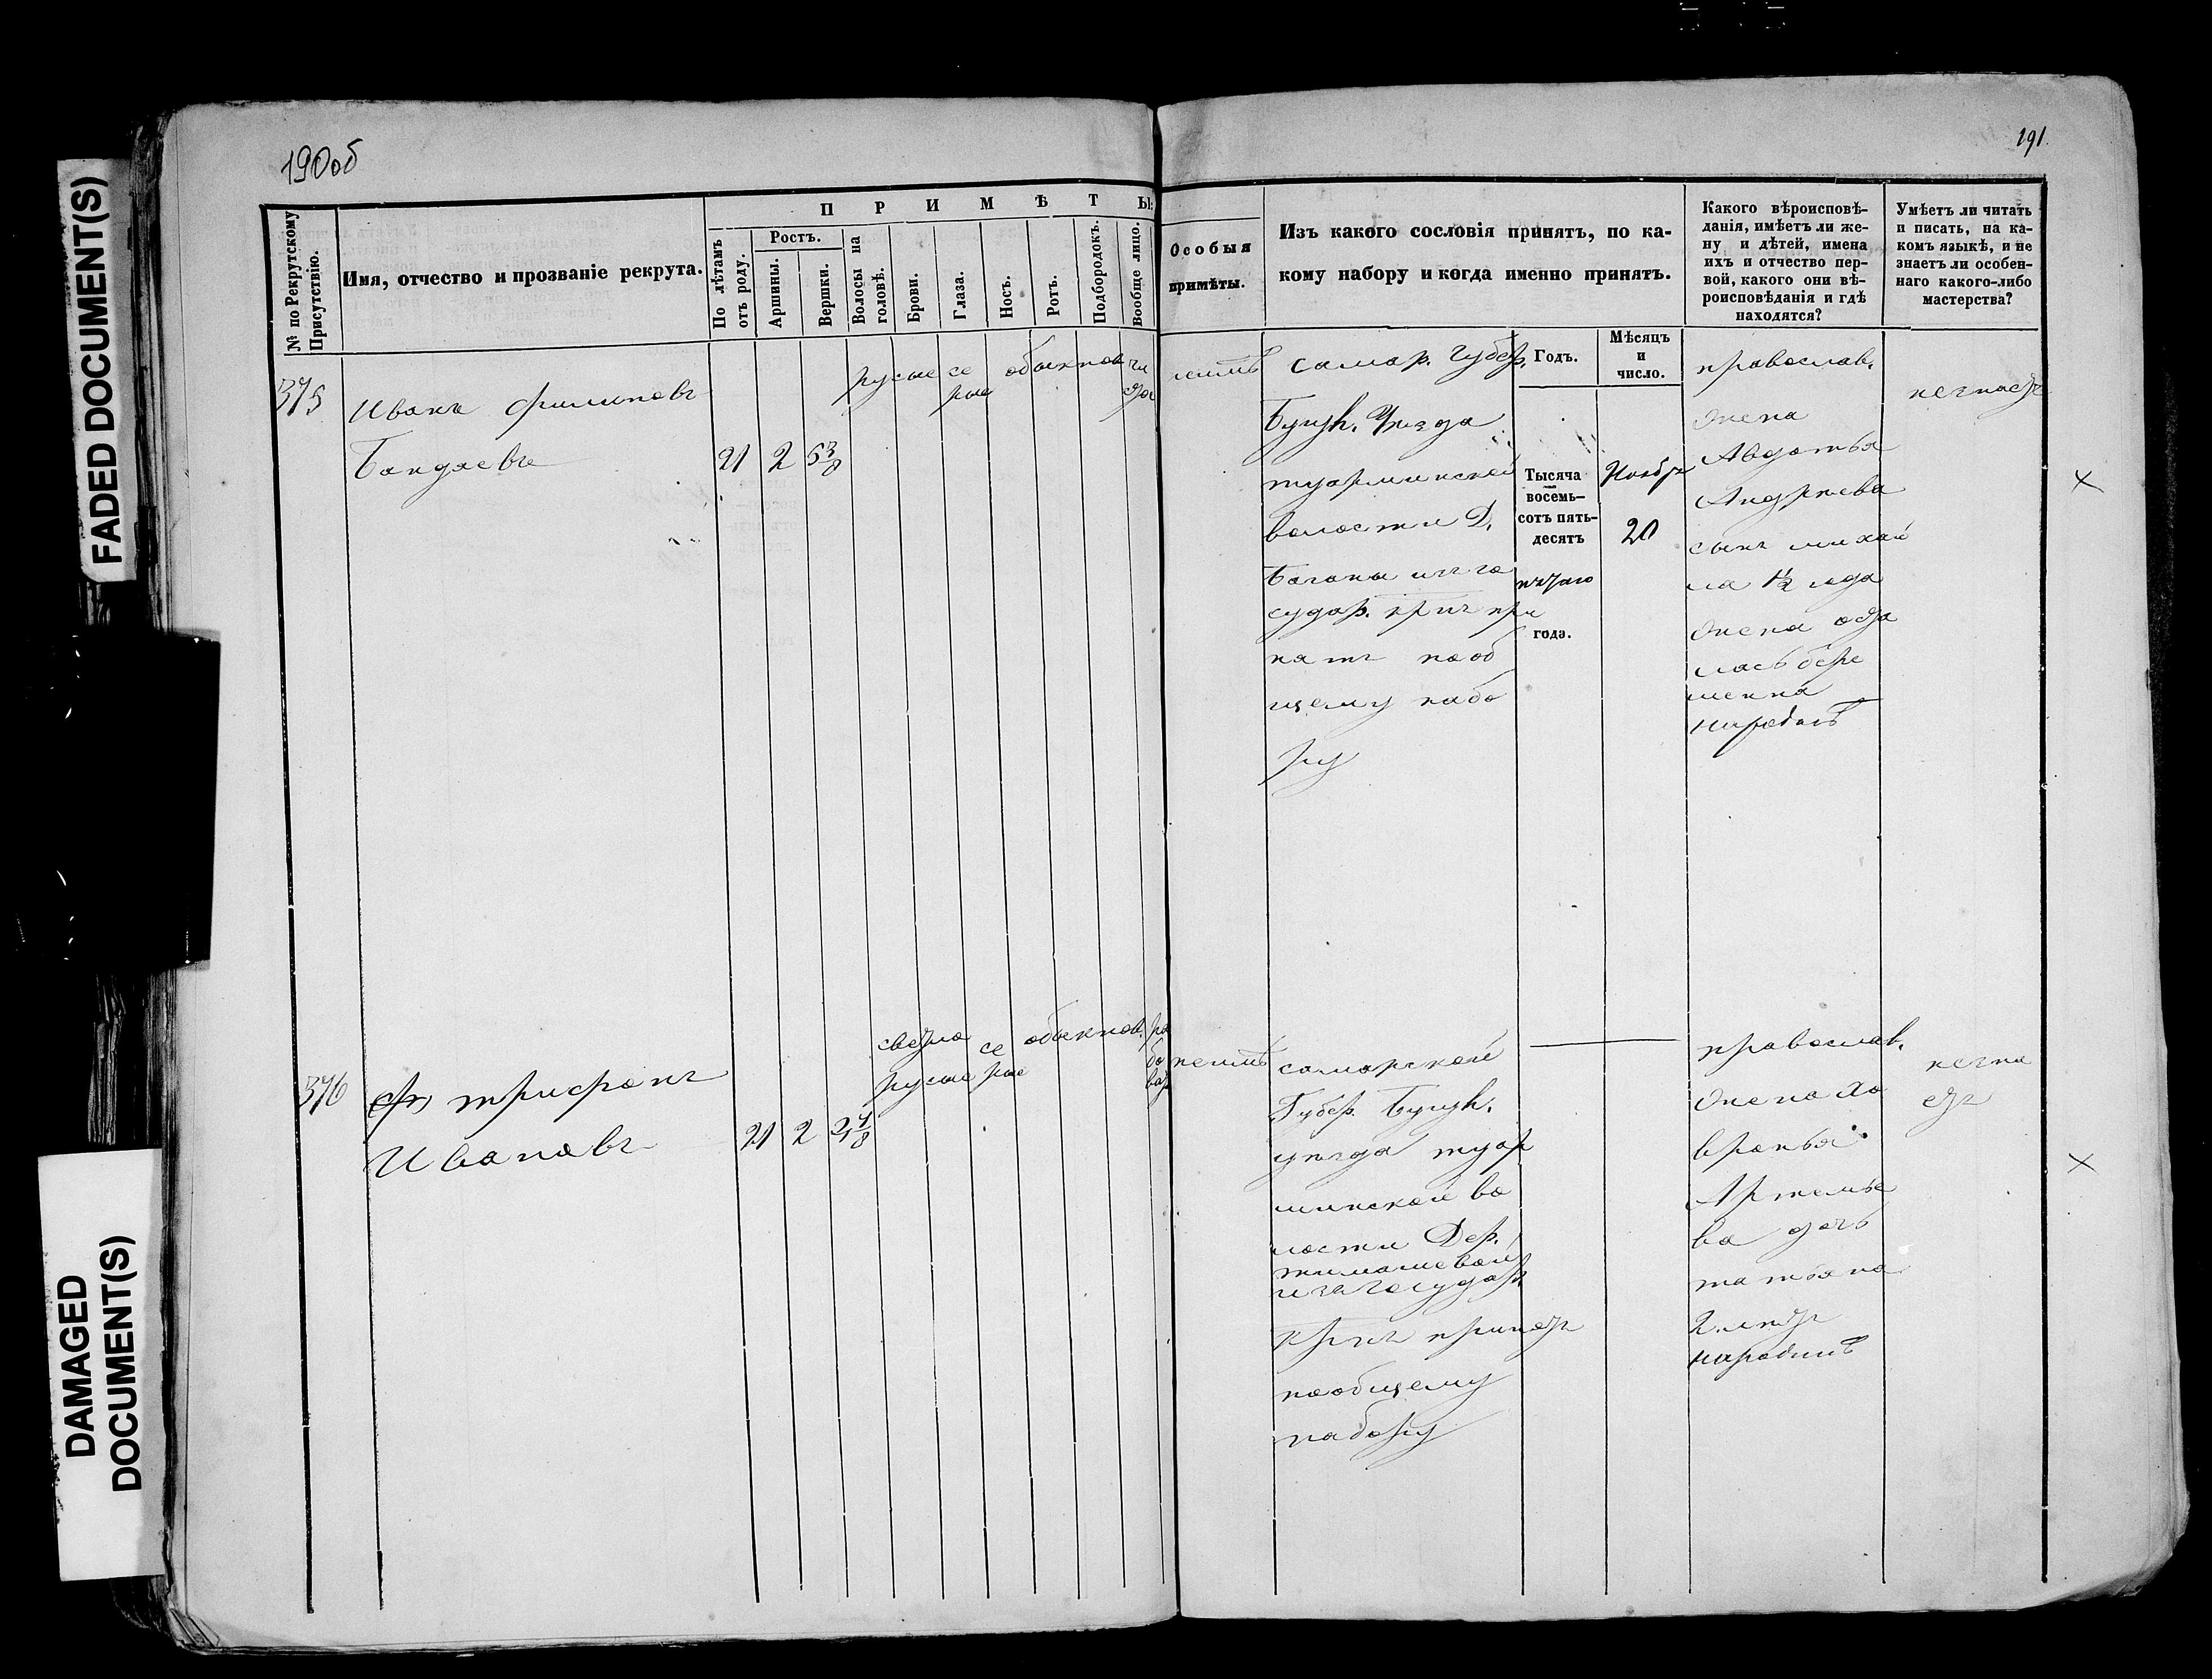 FADED DOCUMENT(S)
DAMAGED
DOCUMENT(S)
190об
191.
№ по Рекрутскому
Присутствію.
Имя, отчество и прозваніе рекрута.
ПРИМѢТЫ:
По лѣтамъ
отъ роду.
Ростъ.
Аршины.
Вершки.
Волосы на
головѣ.
Брови.
Глаза.
Носъ.
Ротъ.
Подбородокъ.
Вообще лицо.
Особыя
примѣты.
Изъ какого сословія принятъ, по ка-
кому набору и когда именно принятъ.
Какого вѣроисповѣ-
данія, имѣетъ ли же-
ну и дѣтей, имена
ихъ и отчество пер-
вой, какого они вѣ-
роисповѣданія и гдѣ
находятся?
Умѣетъ ли читать
и писать, на ка-
комъ языкѣ, и не
знаетъ ли особен-
наго какого-либо
мастерства?
375
Иванъ Филиповъ
Бандаевъ
21 2 5 3/8
русые
се
рые
обыкнов
чи
стое
неимѣ
самар. Губер.
Бугул. Уезда
туарминской
волости Д.
изъ го
судар. крнъ при
нятъ пооб
щему набо
ру
Годъ.
Мѣсяцъ
и
число.
Тысяча
восемь-
сотъ пять-
десятъ
пятаго
года.
Ноябр
20
православ.
жена
Авдотья
Андреева
сынъ михаи
ла 1/2 года
жена оста
лась бере
менна
народинѣ
незнаетъ
×
376
трифонъ
Ивановъ
21 2 2 4/8
светло
русые
се
рые
обыкнов.
ря
бо
ват
неимѣ
самарской
Губер. Бугул.
уезда туар
минской во
лости Дер.
тимашевой
изъ государ.
крнъ принятъ
пообщему
набору
православ.
жена Ха
вронья
Артемье
ва дочь
татьяна
2. летъ
народинѣ
незна
етъ
×